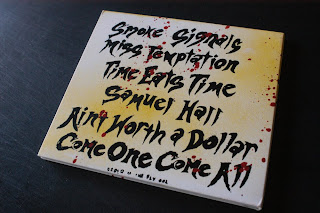 Smoke Signals
Miss Temptation
Time Eats Time
Samuel Hall
Ain't Worth a Dollar
Come One Come All